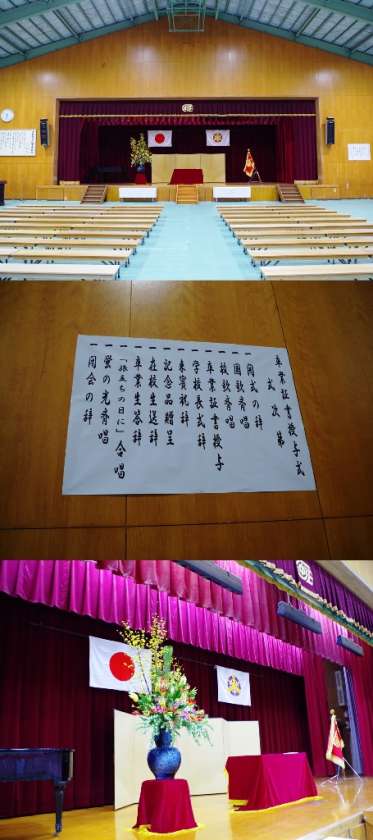 卒業証書授与式
式次第
一 開式の辞
一 国歌斉唱
一 校歌斉唱
一 卒業証書授与
一 学校長式辞
一 来賓祝辞
一 記念品贈呈
一 在校生送辞
一 卒業生答辞
一 「旅立ちの日に」合唱
一 蛍の光斉唱
一 閉会の辞